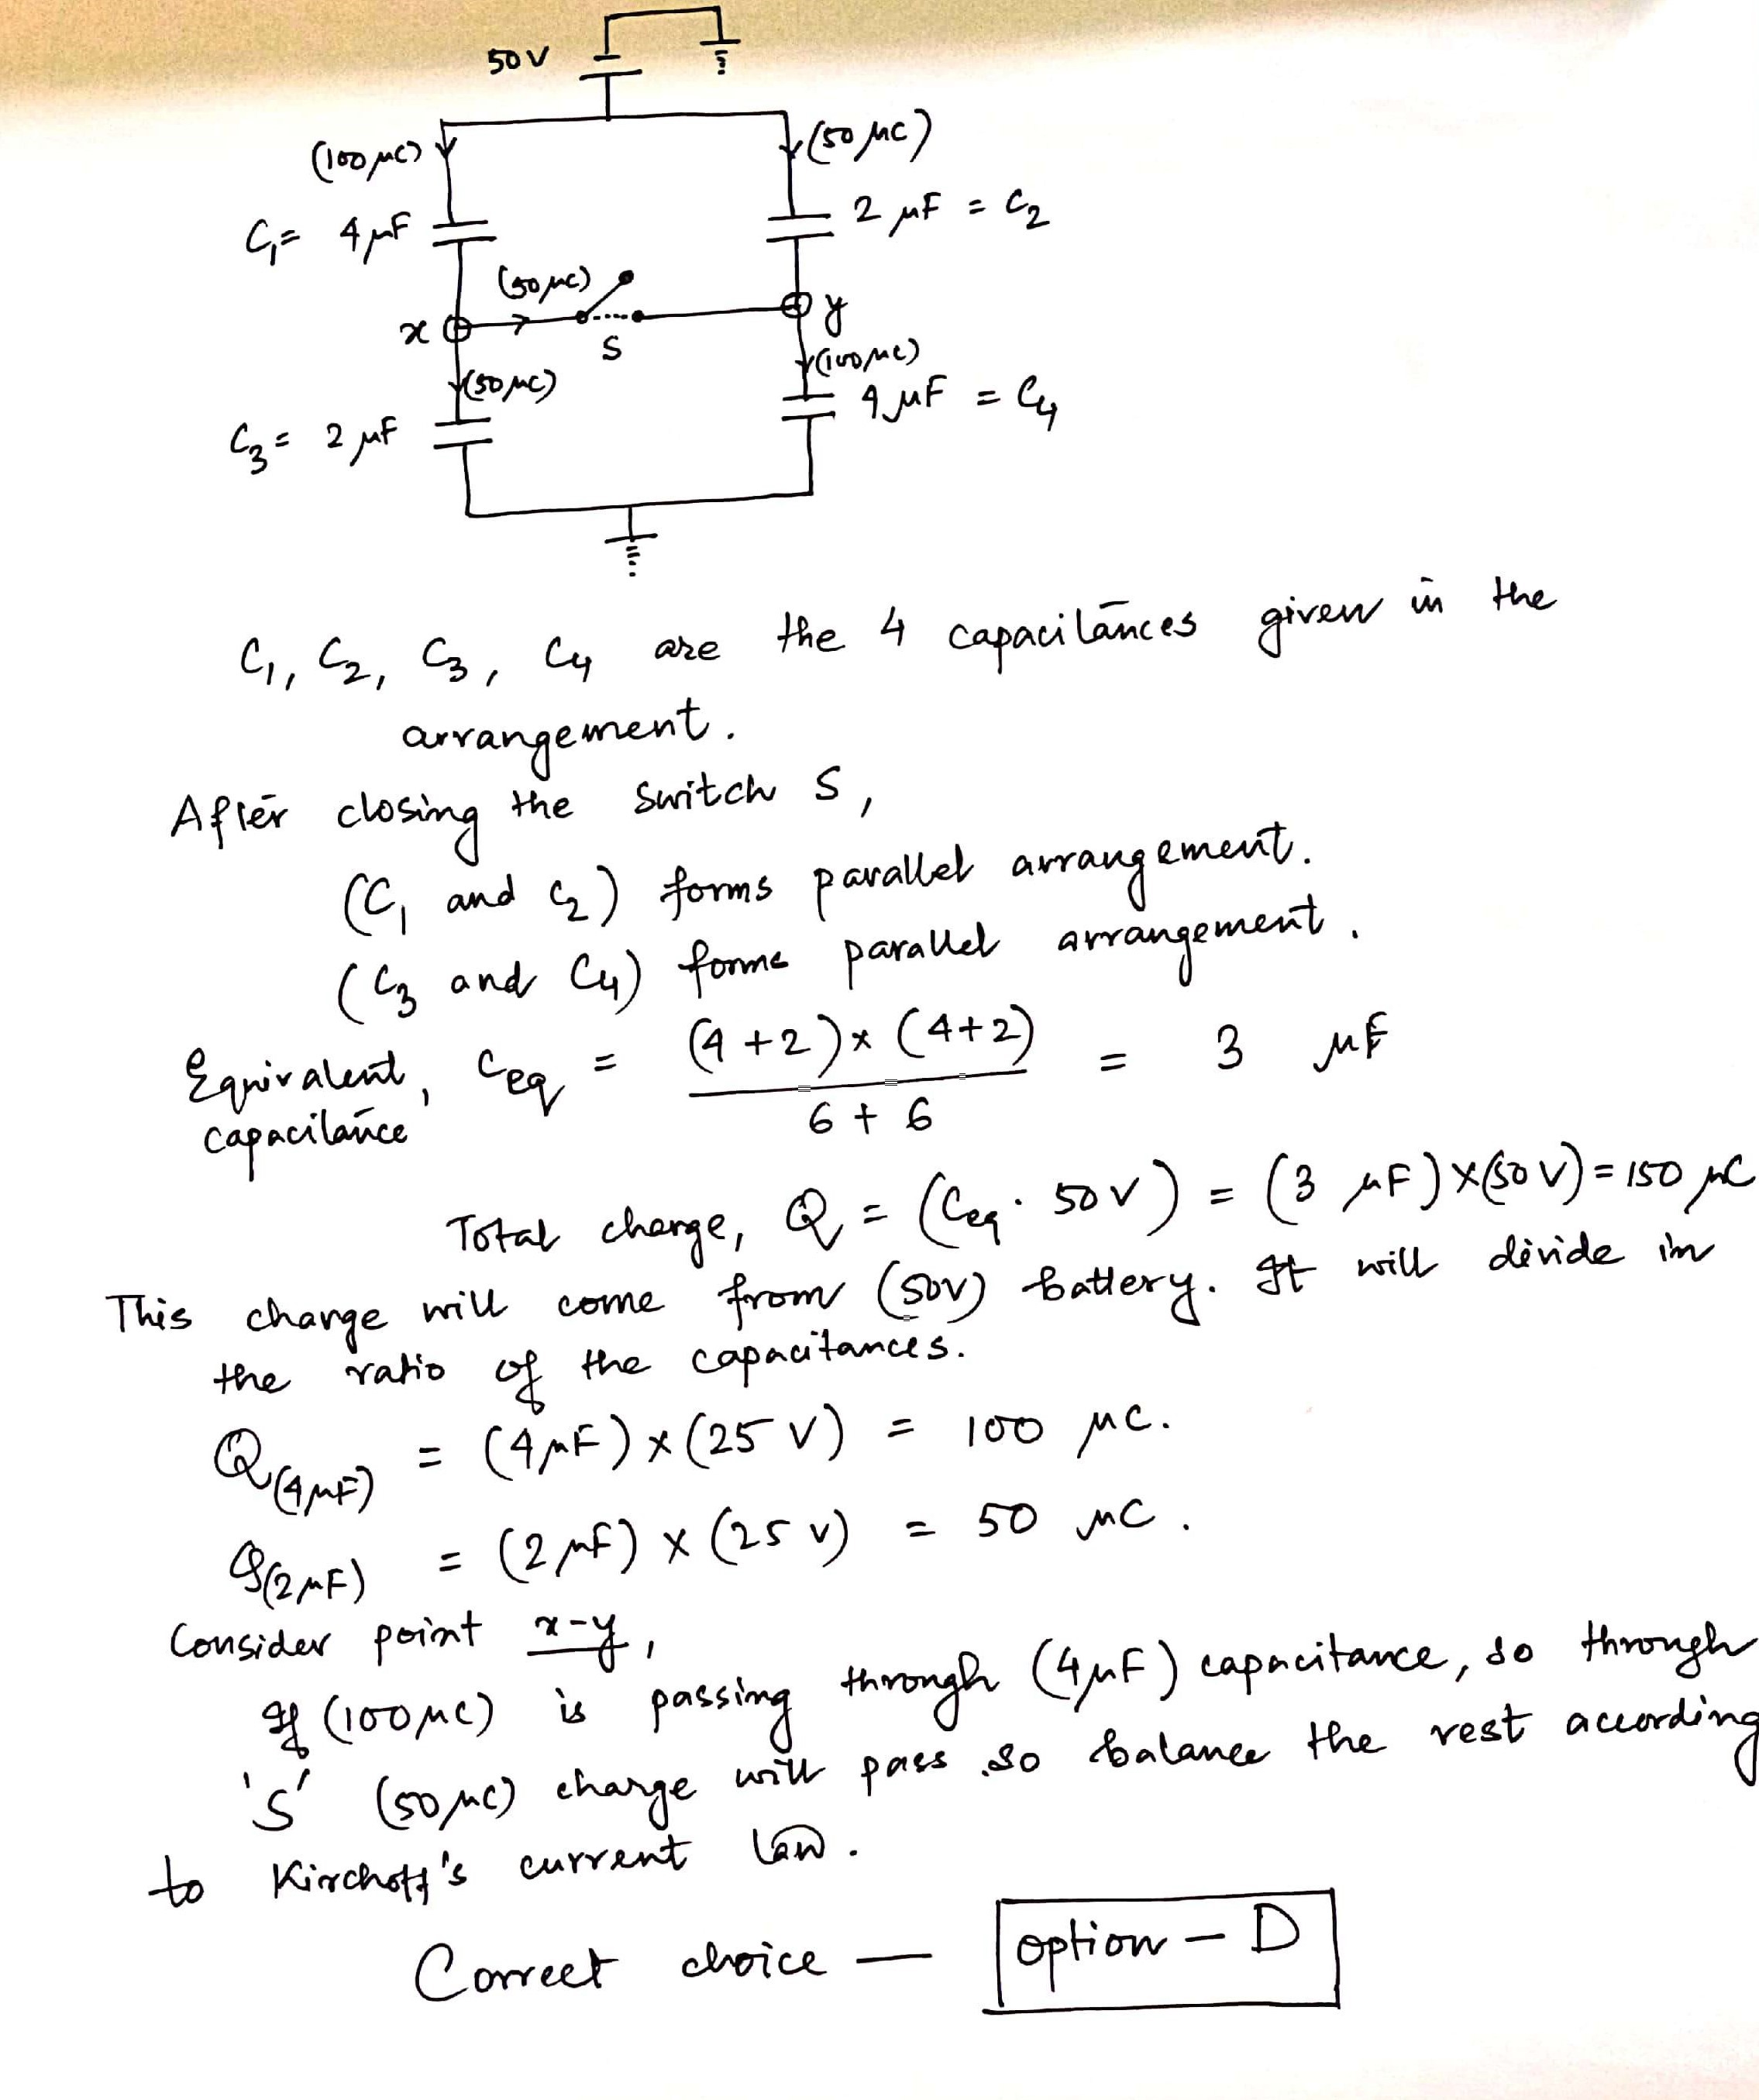 50 V
(100 μC)
(50 μC)
C₁ = 4 μF
2 μF = C₂
(50 μC)
x
y
S
(50 μC)
(100 μC)
C₃ = 2 μF
4 μF = C₄
C₁, C₂, C₃, C₄ are the 4 capacitances given in the
arrangement.
After closing the switch S,
(C₁ and C₂) forms parallel arrangement.
(C₃ and C₄) forms parallel arrangement.
Equivalent, Ceq = (4+2) × (4+2) / 6 + 6 = 3 μF
capacitance
Total charge, Q = (Ceq · 50 V) = (3 μF) × (50 V) = 150 μC
This charge will come from (50V) battery. It will divide in
the ratio of the capacitances.
Q(4μF) = (4μF) × (25 V) = 100 μC.
Q(2μF) = (2μF) × (25 V) = 50 μC.
Consider point x-y,
If (100 μC) is passing through (4μF) capacitance, so through
'S' (50 μC) charge will pass so balance the rest according
to Kirchoff's current law.
Correct choice — option - D